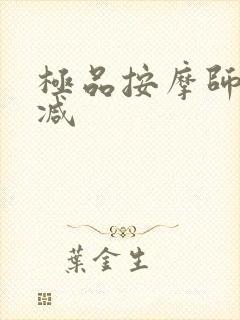 極品按摩師
减
葉金生